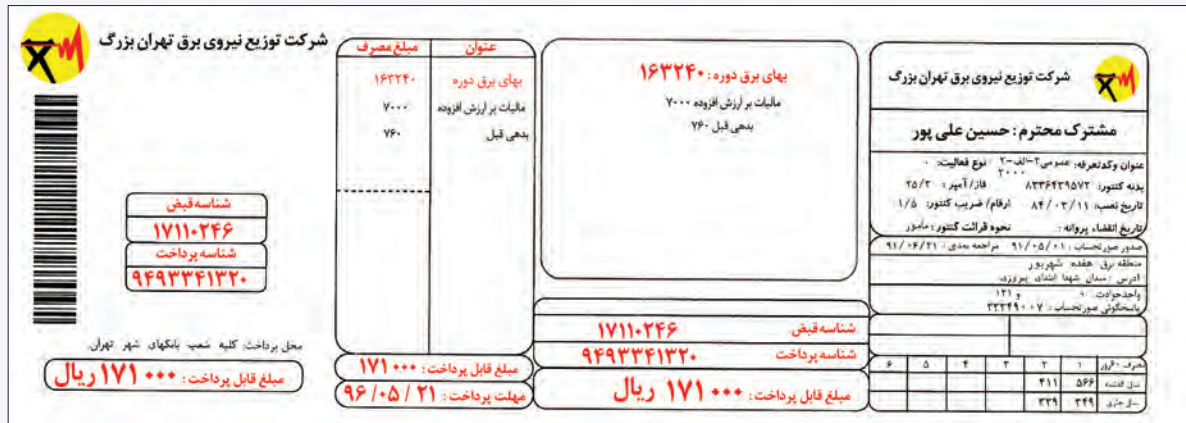 شرکت توزیع نیروی برق تهران بزرگ
مشترک محترم : حسین علی پور
عنوان وکدتعرفه: عمومی۲-الف-۲ نوع فعالیت: ۰
۲۰۰۰
بدنه کنتور: ۸۳۳۶۴۳۹۵۷۲ فاز/ آمپر : ۲۵/۲
تاریخ نصب: ۸۴/۰۳/۱۱ ارقام/ ضریب کنتور: ۱/۵
تاریخ انقضاء پروانه : نحوه قرائت کنتور: مامور
صدور صورتحساب : ۹۱/۰۵/۰۱ مراجعه بعدی : ۹۱/۰۶/۲۱
منطقه برق هفده شهریور
آدرس : میدان شهدا ابتدای پیروزی
واحدحوادث : ۰ و ۱۲۱
پاسخگوئی صورتحساب :
مصرف ۶۰روز ۱ ۲ ۳ ۴ ۵ ۶
سال گذشته ۵۶۶ ۴۱۱
سال جاری ۳۴۹ ۳۳۹
بهای برق دوره : ۱۶۳۲۴۰
مالیات بر ارزش افزوده ۷۰۰۰
بدهی قبل ۷۶۰
شناسه قبض ۱۷۱۱۰۲۴۶
شناسه پرداخت ۹۴۹۳۳۴۱۳۲۰
مبلغ قابل پرداخت : ۱۷۱۰۰۰ ریال
عنوان مبلغ مصرف
بهای برق دوره ۱۶۳۲۴۰
مالیات بر ارزش افزوده ۷۰۰۰
بدهی قبل ۷۶۰
مبلغ قابل پرداخت : ۱۷۱۰۰۰
مهلت پرداخت : ۹۶/۰۵/۲۱
شرکت توزیع نیروی برق تهران بزرگ
شناسه قبض
۱۷۱۱۰۲۴۶
شناسه پرداخت
۹۴۹۳۳۴۱۳۲۰
محل پرداخت: کلیه شعب بانکهای شهر تهران.
مبلغ قابل پرداخت : ۱۷۱۰۰۰ ریال